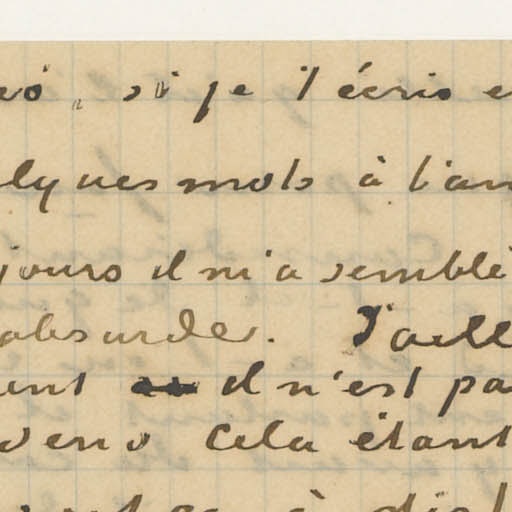 si je t'écris e
lques mots à l'an
jours il m'a semblé
absurde. J'aill
ent il n'est pa
sens Cela étant